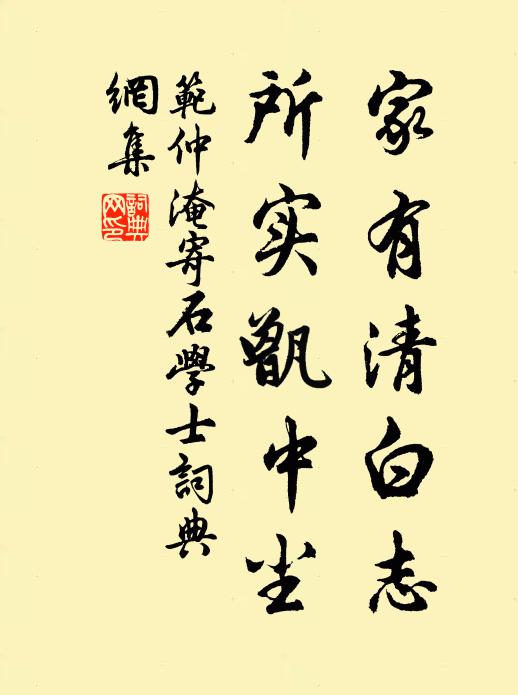 家有清白志
所实甑中尘
範仲淹寄石學士詞典
網集
詞典
网印